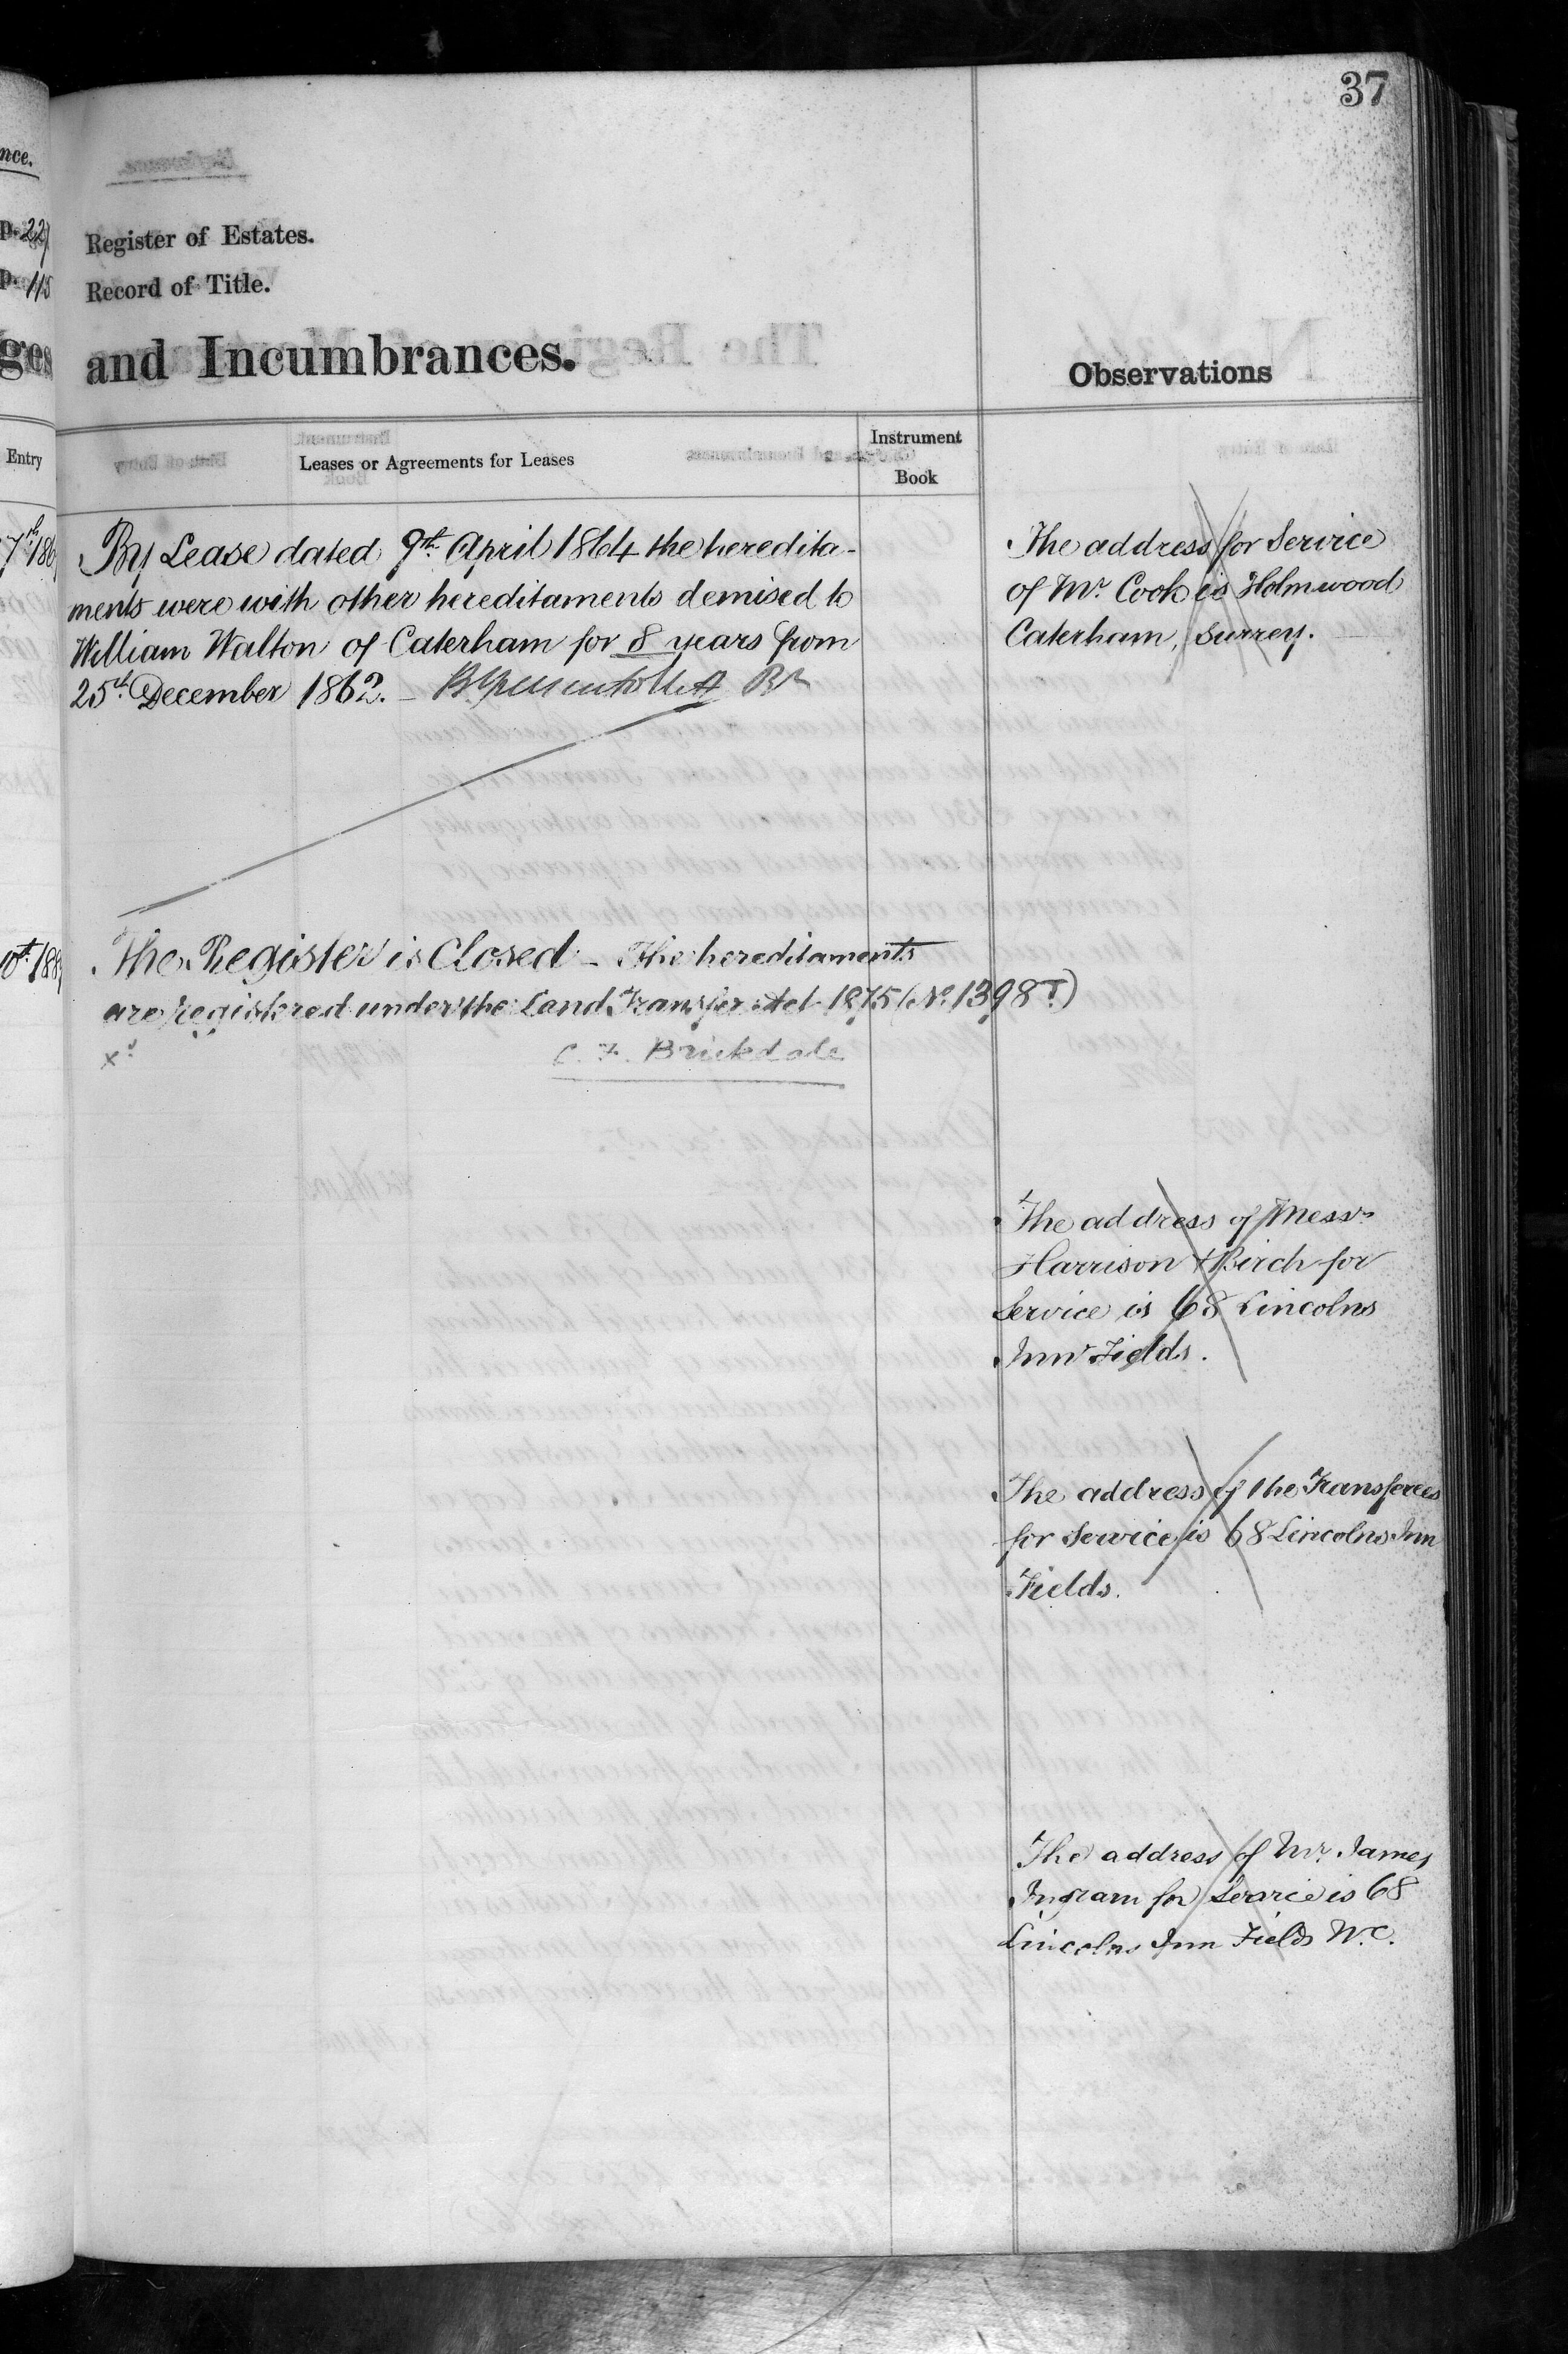 37
nce.
p. 229
p. 115
ges
Entry
Register of Estates.
Record of Title.
and Incumbrances.
Observations
Leases or Agreements for Leases
Instrument
Book
By Lease dated 9th April 1864 the heredita-
ments were with other hereditaments demised to
William Walton of Caterham for 8 years from
25th December 1862. –
The Register is Closed – The hereditaments
are registered under the Land Transfer Act 1875 (No. 1398T)
C. F. Brickdale
The address for Service
of Mr. Cook is Holmwood
Caterham, Surrey.
The address of Messrs
Harrison & Birch for
Service is 68 Lincolns
Inn Fields.
The address of the Transferees
for Service is 68 Lincolns Inn
Fields.
The address of Mr. James
Ingram for Service is 68
Lincolns Inn Fields W.C.